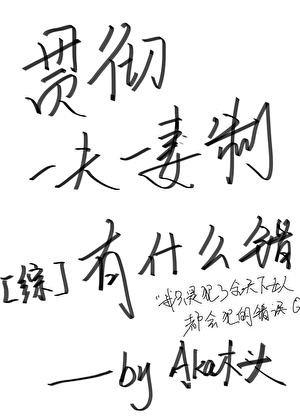 贯彻
一夫一妻制
[综]有什么错
"我只是犯了全天下女人
都会犯的错误G
——by Aka木头